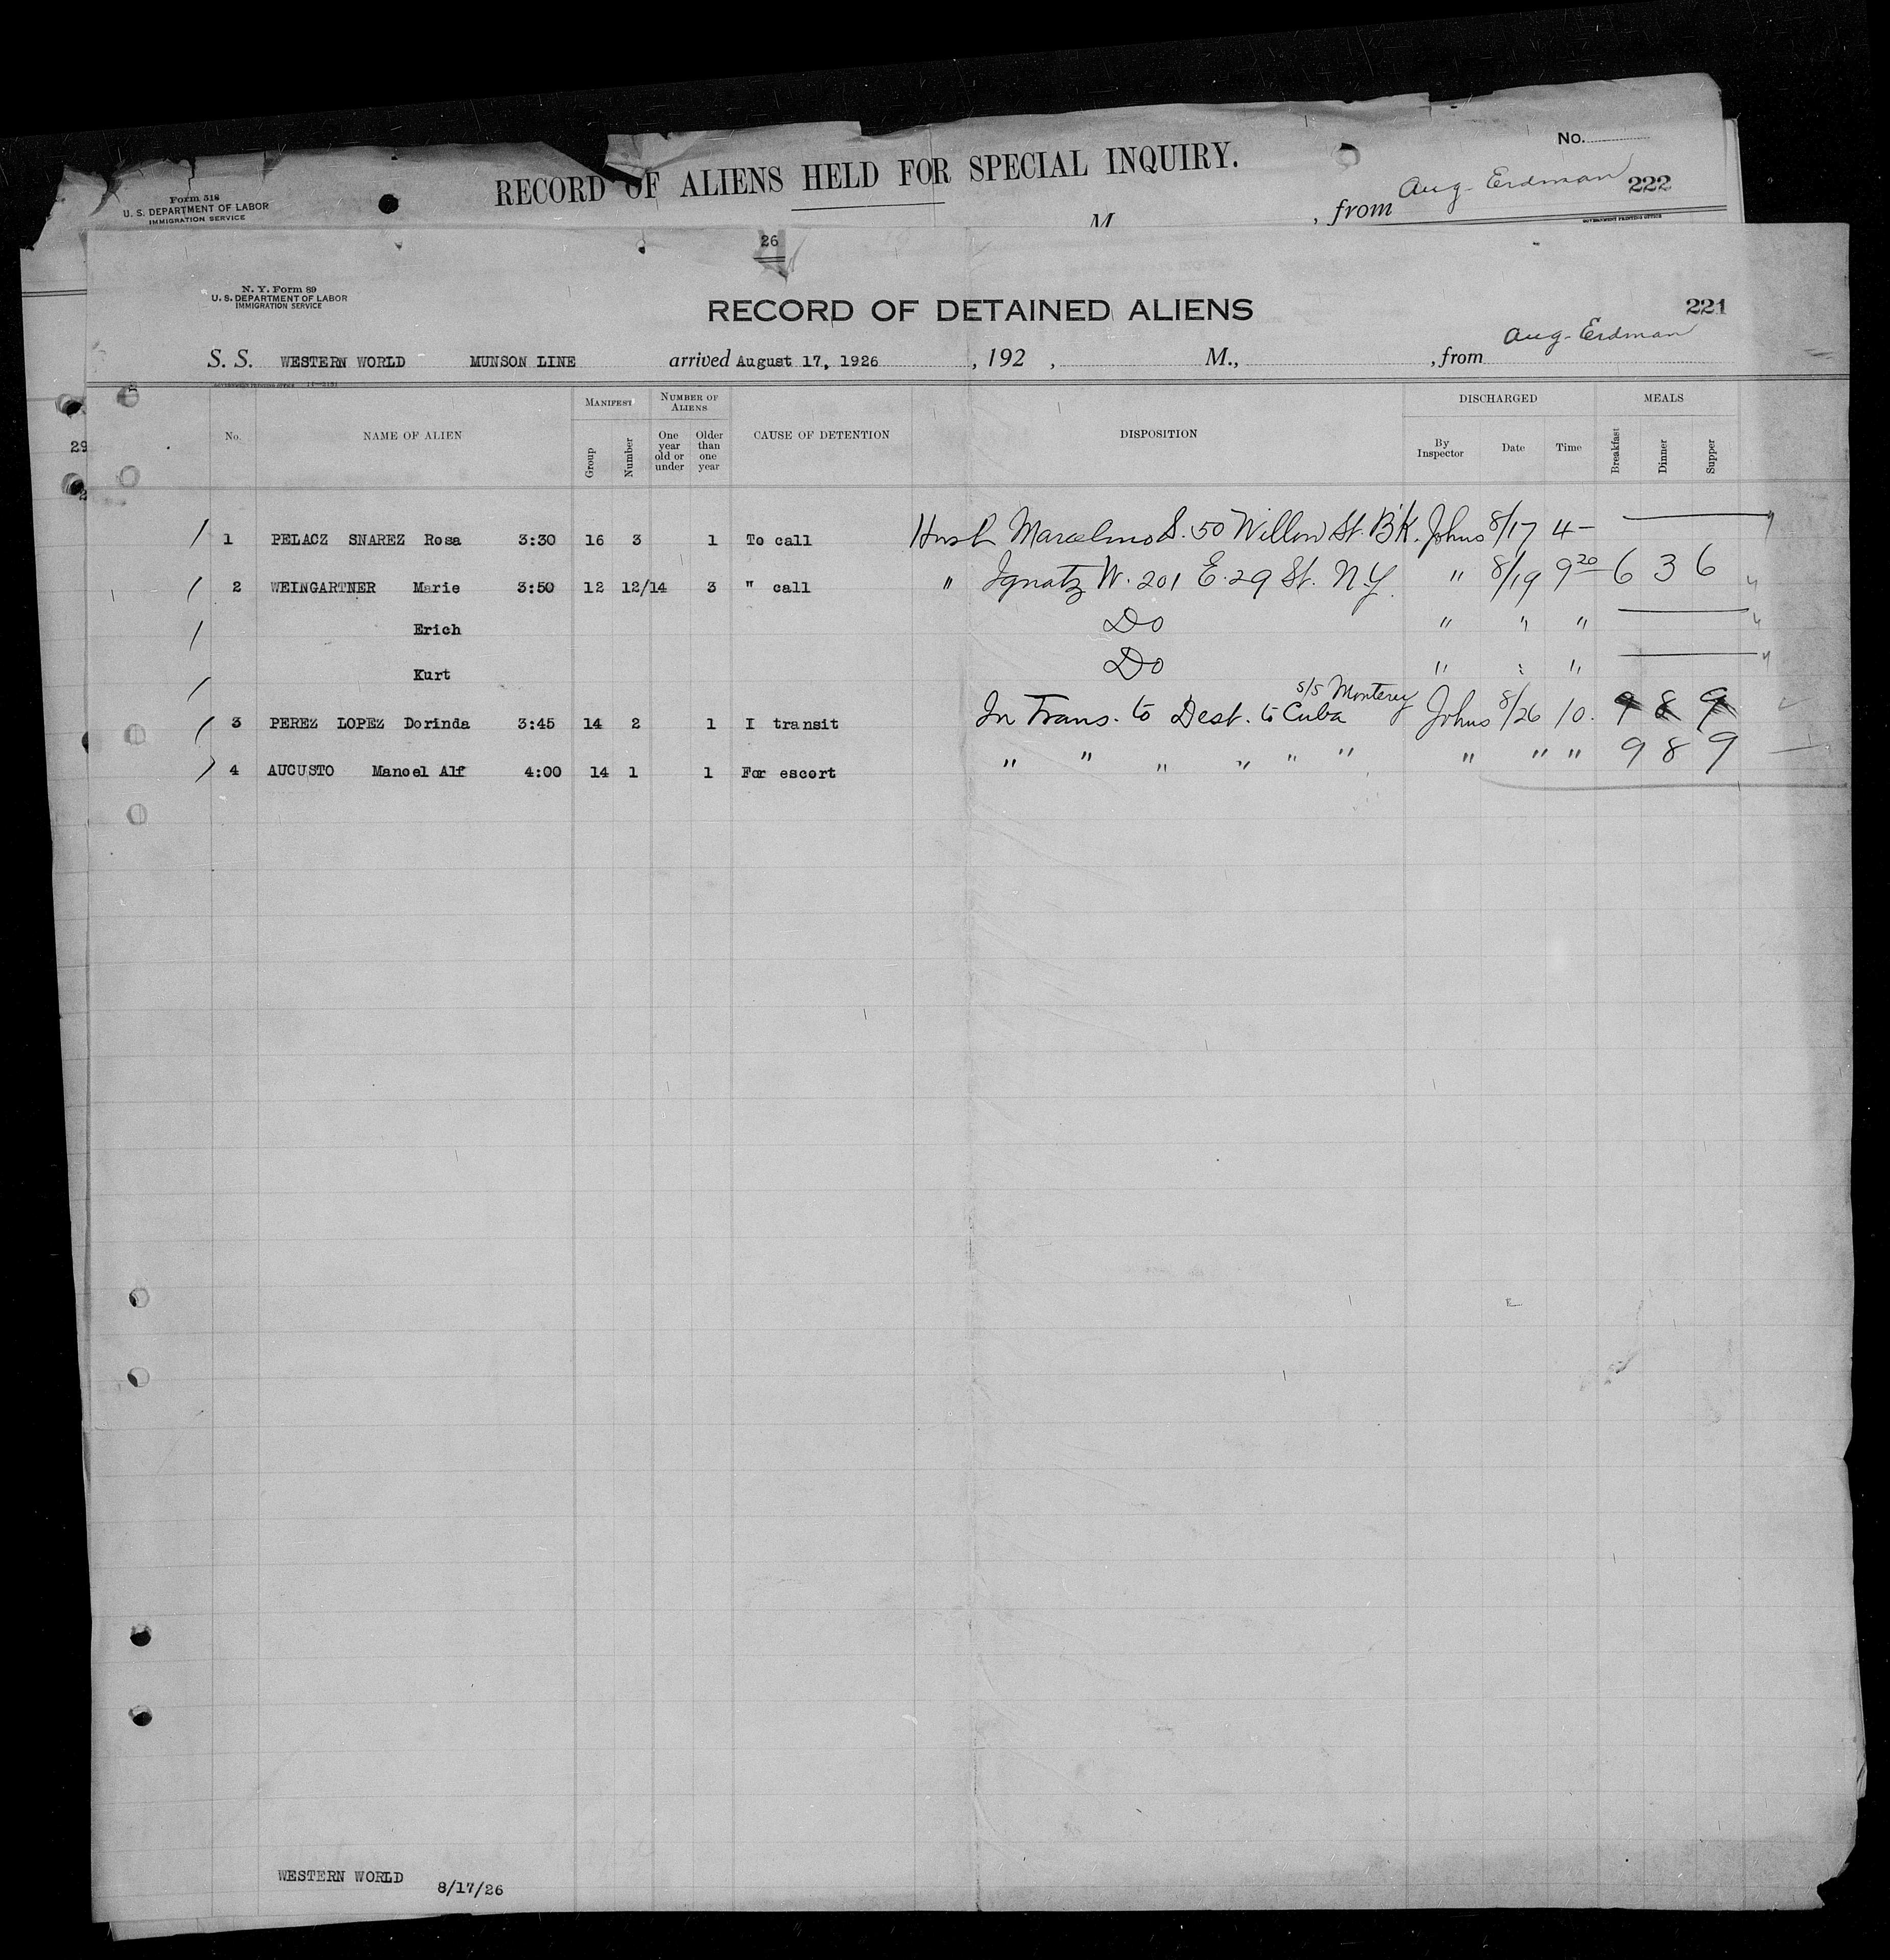 No.
RECORD OF ALIENS HELD FOR SPECIAL INQUIRY.
Aug. Erdman 222
Form 518
U. S. DEPARTMENT OF LABOR
IMMIGRATION SERVICE
M , from
GOVERNMENT PRINTING OFFICE
26
N. Y. Form 89
U. S. DEPARTMENT OF LABOR
IMMIGRATION SERVICE
RECORD OF DETAINED ALIENS
221
Aug. Erdman
S. S. WESTERN WORLD MUNSON LINE arrived August 17, 1926 , 192 , M., , from
GOVERNMENT PRINTING OFFICE
29
2
No. NAME OF ALIEN MANIFEST NUMBER OF ALIENS CAUSE OF DETENTION DISPOSITION DISCHARGED MEALS
Group Number One year old or under Older than one year By Inspector Date Time Breakfast Dinner Supper
1 PELACZ SNAREZ Rosa 3:30 16 3 1 To call Husb Marcelino S. 50 Willow St. B'k. Johns 8/17 4-
2 WEINGARTNER Marie 3:50 12 12/14 3 " call " Ignatz W. 201 E. 29 St. N.Y. " 8/19 9 20 6 3 6
Erich Do " " "
Kurt Do " " "
3 PEREZ LOPEZ Dorinda 3:45 14 2 1 I transit In Trans. to Dest. to Cuba S/S Monterey Johns 8/26 10. 9 8 9
4 AUCUSTO Manoel Alf 4:00 14 1 1 For escort " " " " " " " " " 9 8 9
WESTERN WORLD 8/17/26